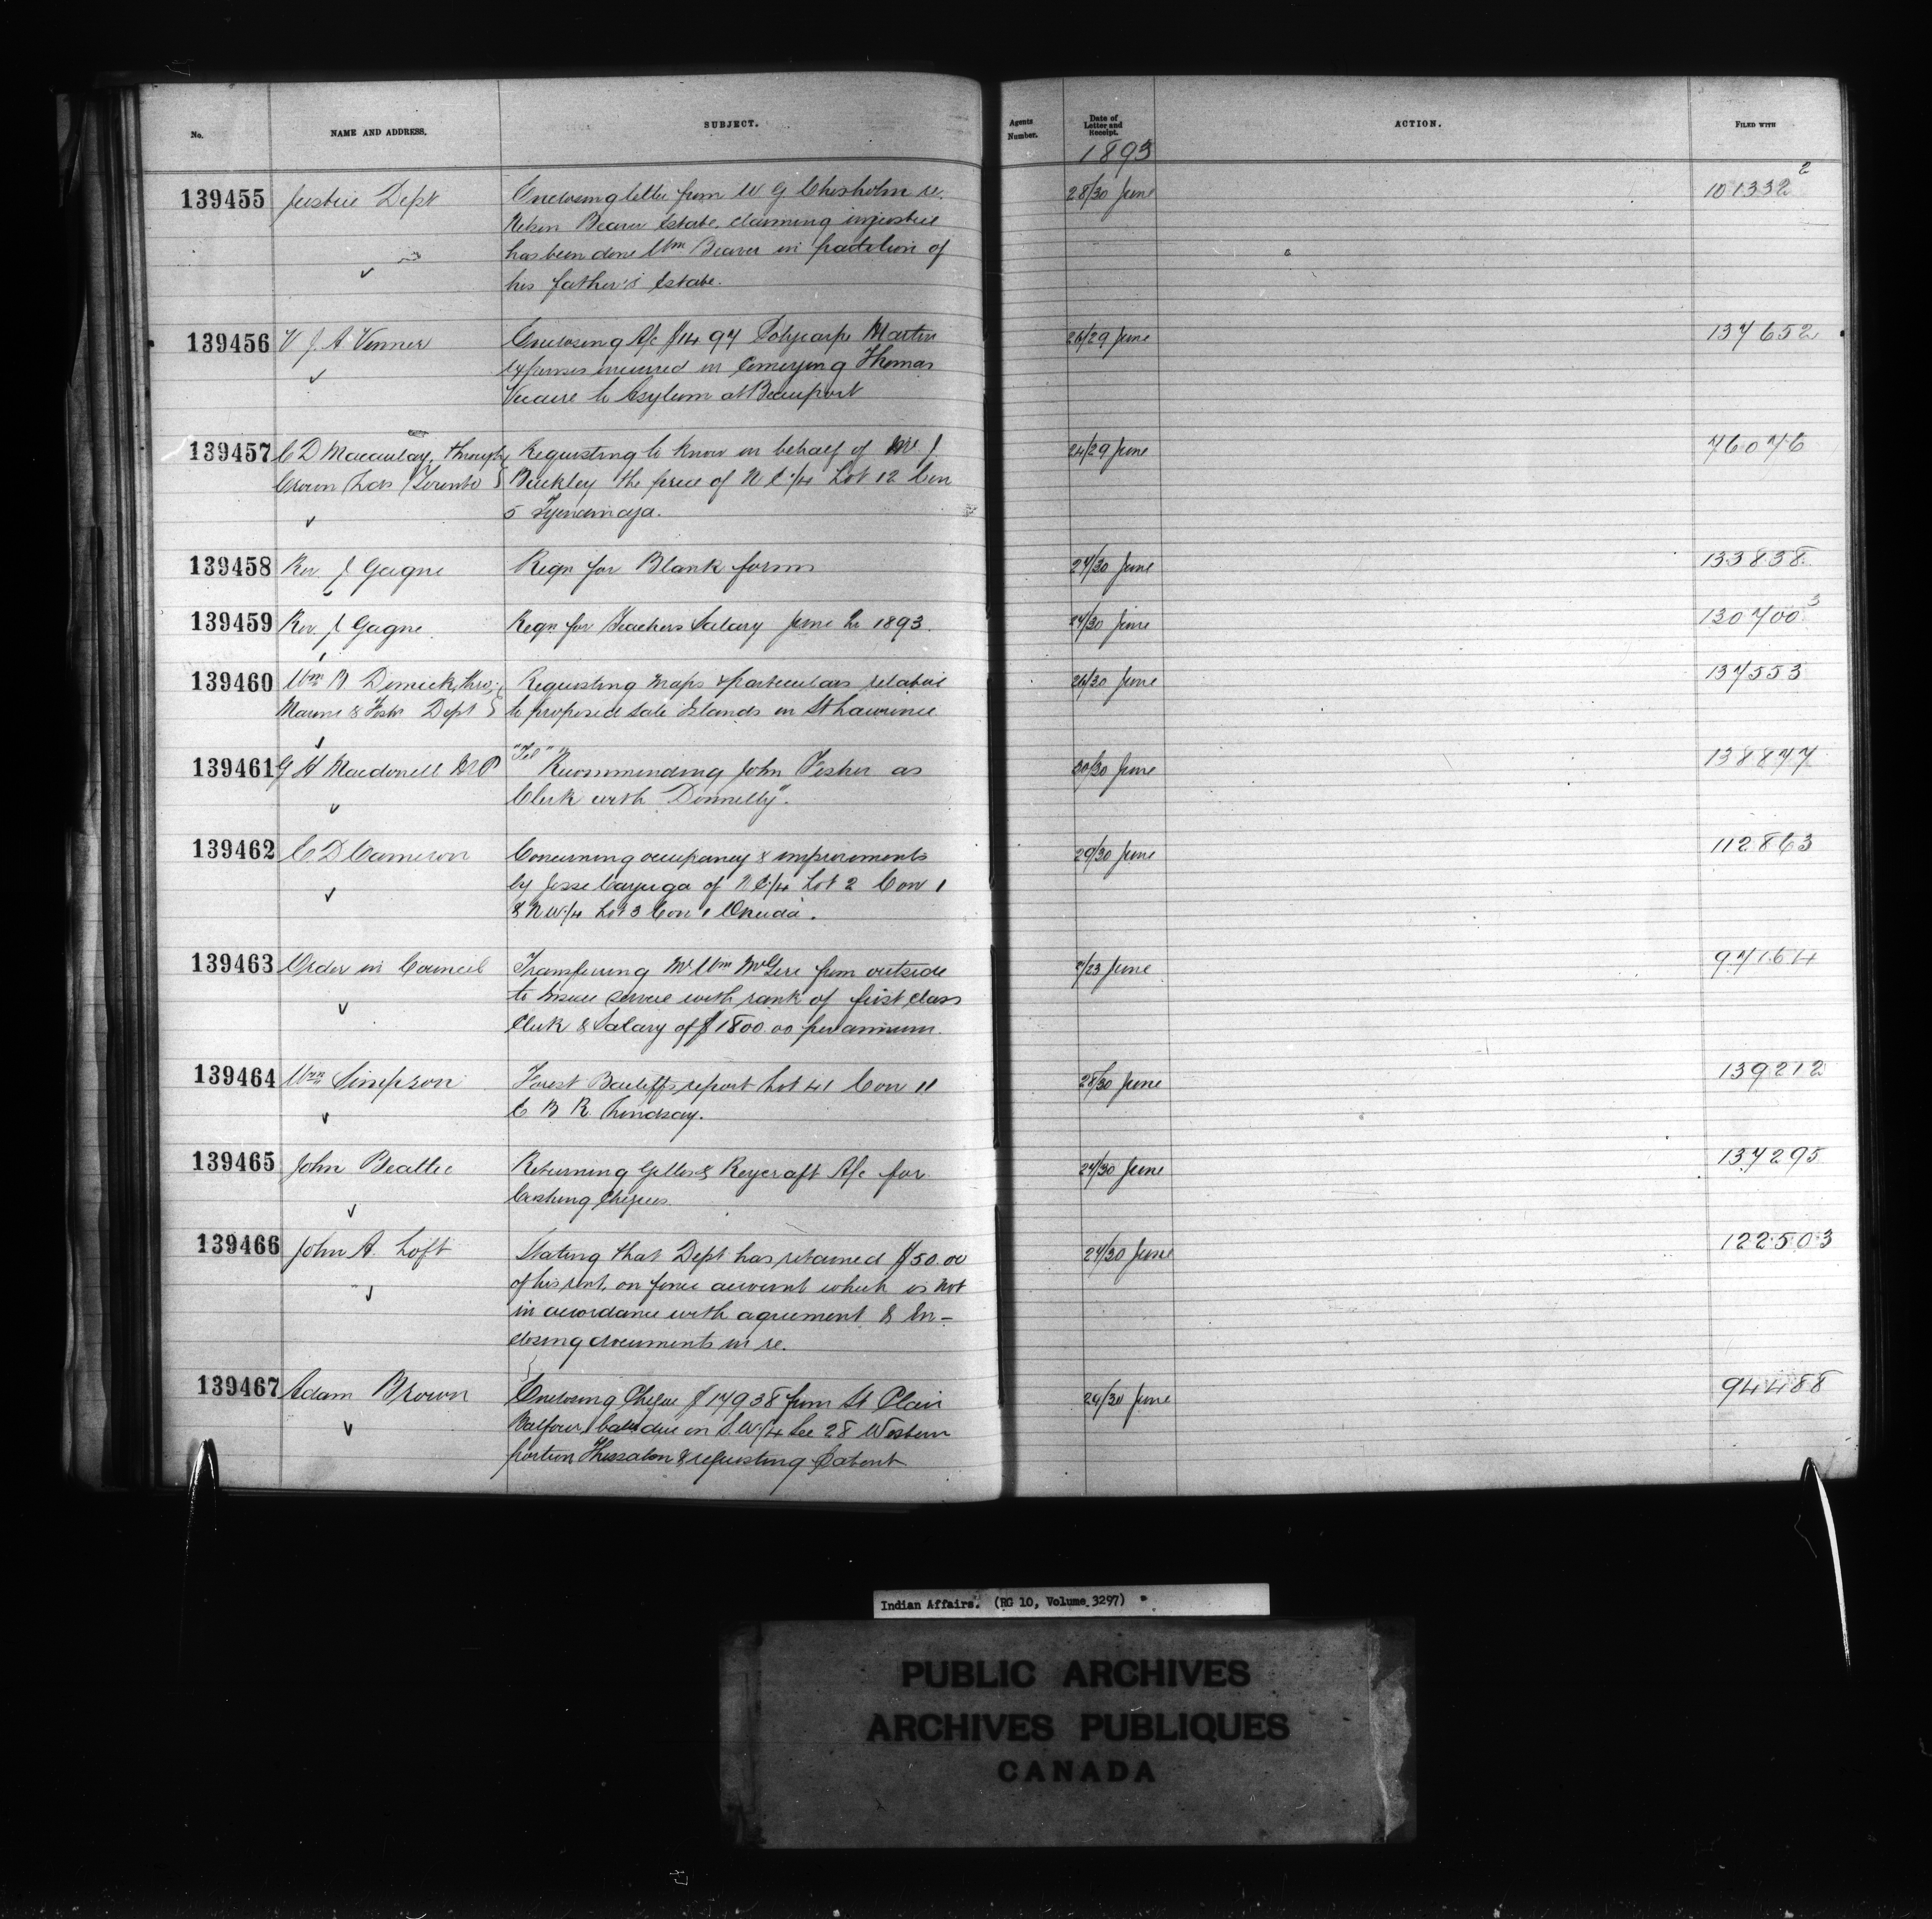 No. NAME AND ADDRESS. SUBJECT. Agents Number. Date of Letter and Receipt. ACTION. FILED WITH
1893
139455 Justice Dept Enclosing letter from W G Chisholm re. 28/30 June 101332 2
Nelson Beaver Estate, claiming injustice
has been done Wm Beaver in partition of
his father's Estate.
139456 V J A Venner Enclosing A/c $14 97 Polycarpe Martin 26/29 June 137652
expenses incurred in Conveying Thomas
to Asylum at Beauport
139457 C D Macaulay, through Requesting to know on behalf of 24/29 June 76076
Crown Lds Toronto Buckley the price of N E 1/4 Lot 12 Con
5 Tyendinaga.
139458 Rev. J Gagne Reqn for Blank forms 27/30 June 133838
139459 Rev. J Gagne. Reqn for Teachers Salary June Qr 1893. 27/30 June 130700 3
139460 Wm B. thro; Requesting Maps & particulars relative 26/30 June 137553
Marine & Fish. Dept to proposed sale Islands in St Lawrence
139461 G H Macdonell M P "Tel" Recommending John Fisher as 30/30 June 138877
Clerk with "Donnelly".
139462 E D Cameron Concerning occupancy & improvements 29/30 June 112863
by Jesse Cayuga of N E 1/4 Lot 2 Con 1
& N W 1/4 Lot 3 Con 1 Oneida.
139463 Order in Council Transferring Mr Wm McGirr from outside /23 June 97164
to inside service with rank of first class
Clerk & Salary of $1800 00 per annum.
139464 Wm Simpson Forest Bailiff's report Lot 41 Con 11 28/30 June 139212
E B R Lindsay.
139465 John Beattie Returning & Reycraft A/c for 27/30 June 137295
Cashing Cheques.
139466 John A. Loft Stating that Dept has retained $50.00 27/30 June 122503
of his rent, on fence account which is not
in accordance with agreement & En-
closing documents in re.
139467 Adam Brown Enclosing Cheque $179 38 from St Clair 29/30 June 94488
Balfour, bal due on S.W 1/4 Sec 28 Western
portion Thessalon & requesting Patent
Indian Affairs. (RG 10, Volume 3297)
PUBLIC ARCHIVES
ARCHIVES PUBLIQUES
CANADA